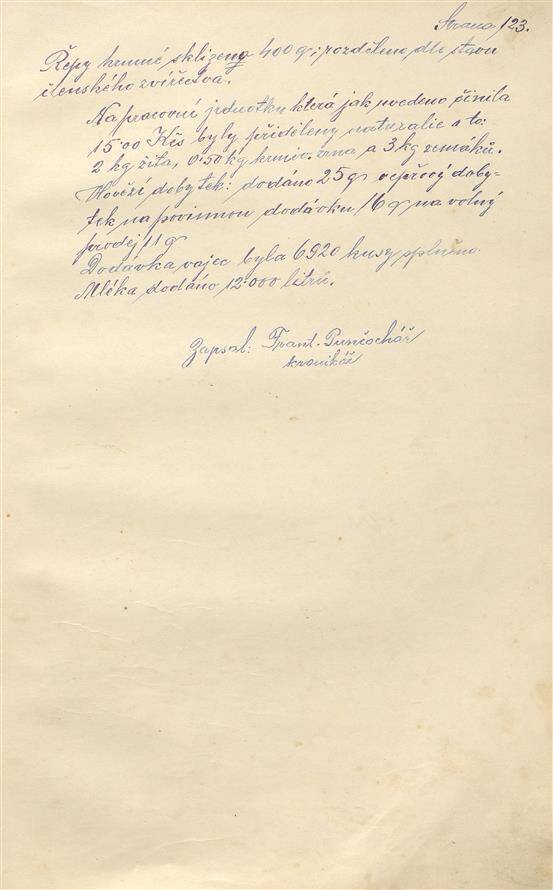 Strana 123.
Řepy krmné sklizeno 400 q; rozděleno dle stavu
členského zvířectva.
Na pracovní jednotku která jak uvedeno činila
15·00 Kčs byly přiděleny naturalie a to:
2 kg žita, 0·50 kg krmiv. zrna a 3 kg zemáků.
Hovězí dobytek: dodáno 25 q vepřový doby-
tek na povinnou dodávku 16 q na volný
prodej 11 q
Dodávka vajec byla 6920 kusy splněna
Mléka dodáno 12·000 litrů.
Zapsal: Frant. Punčochář
kronikář